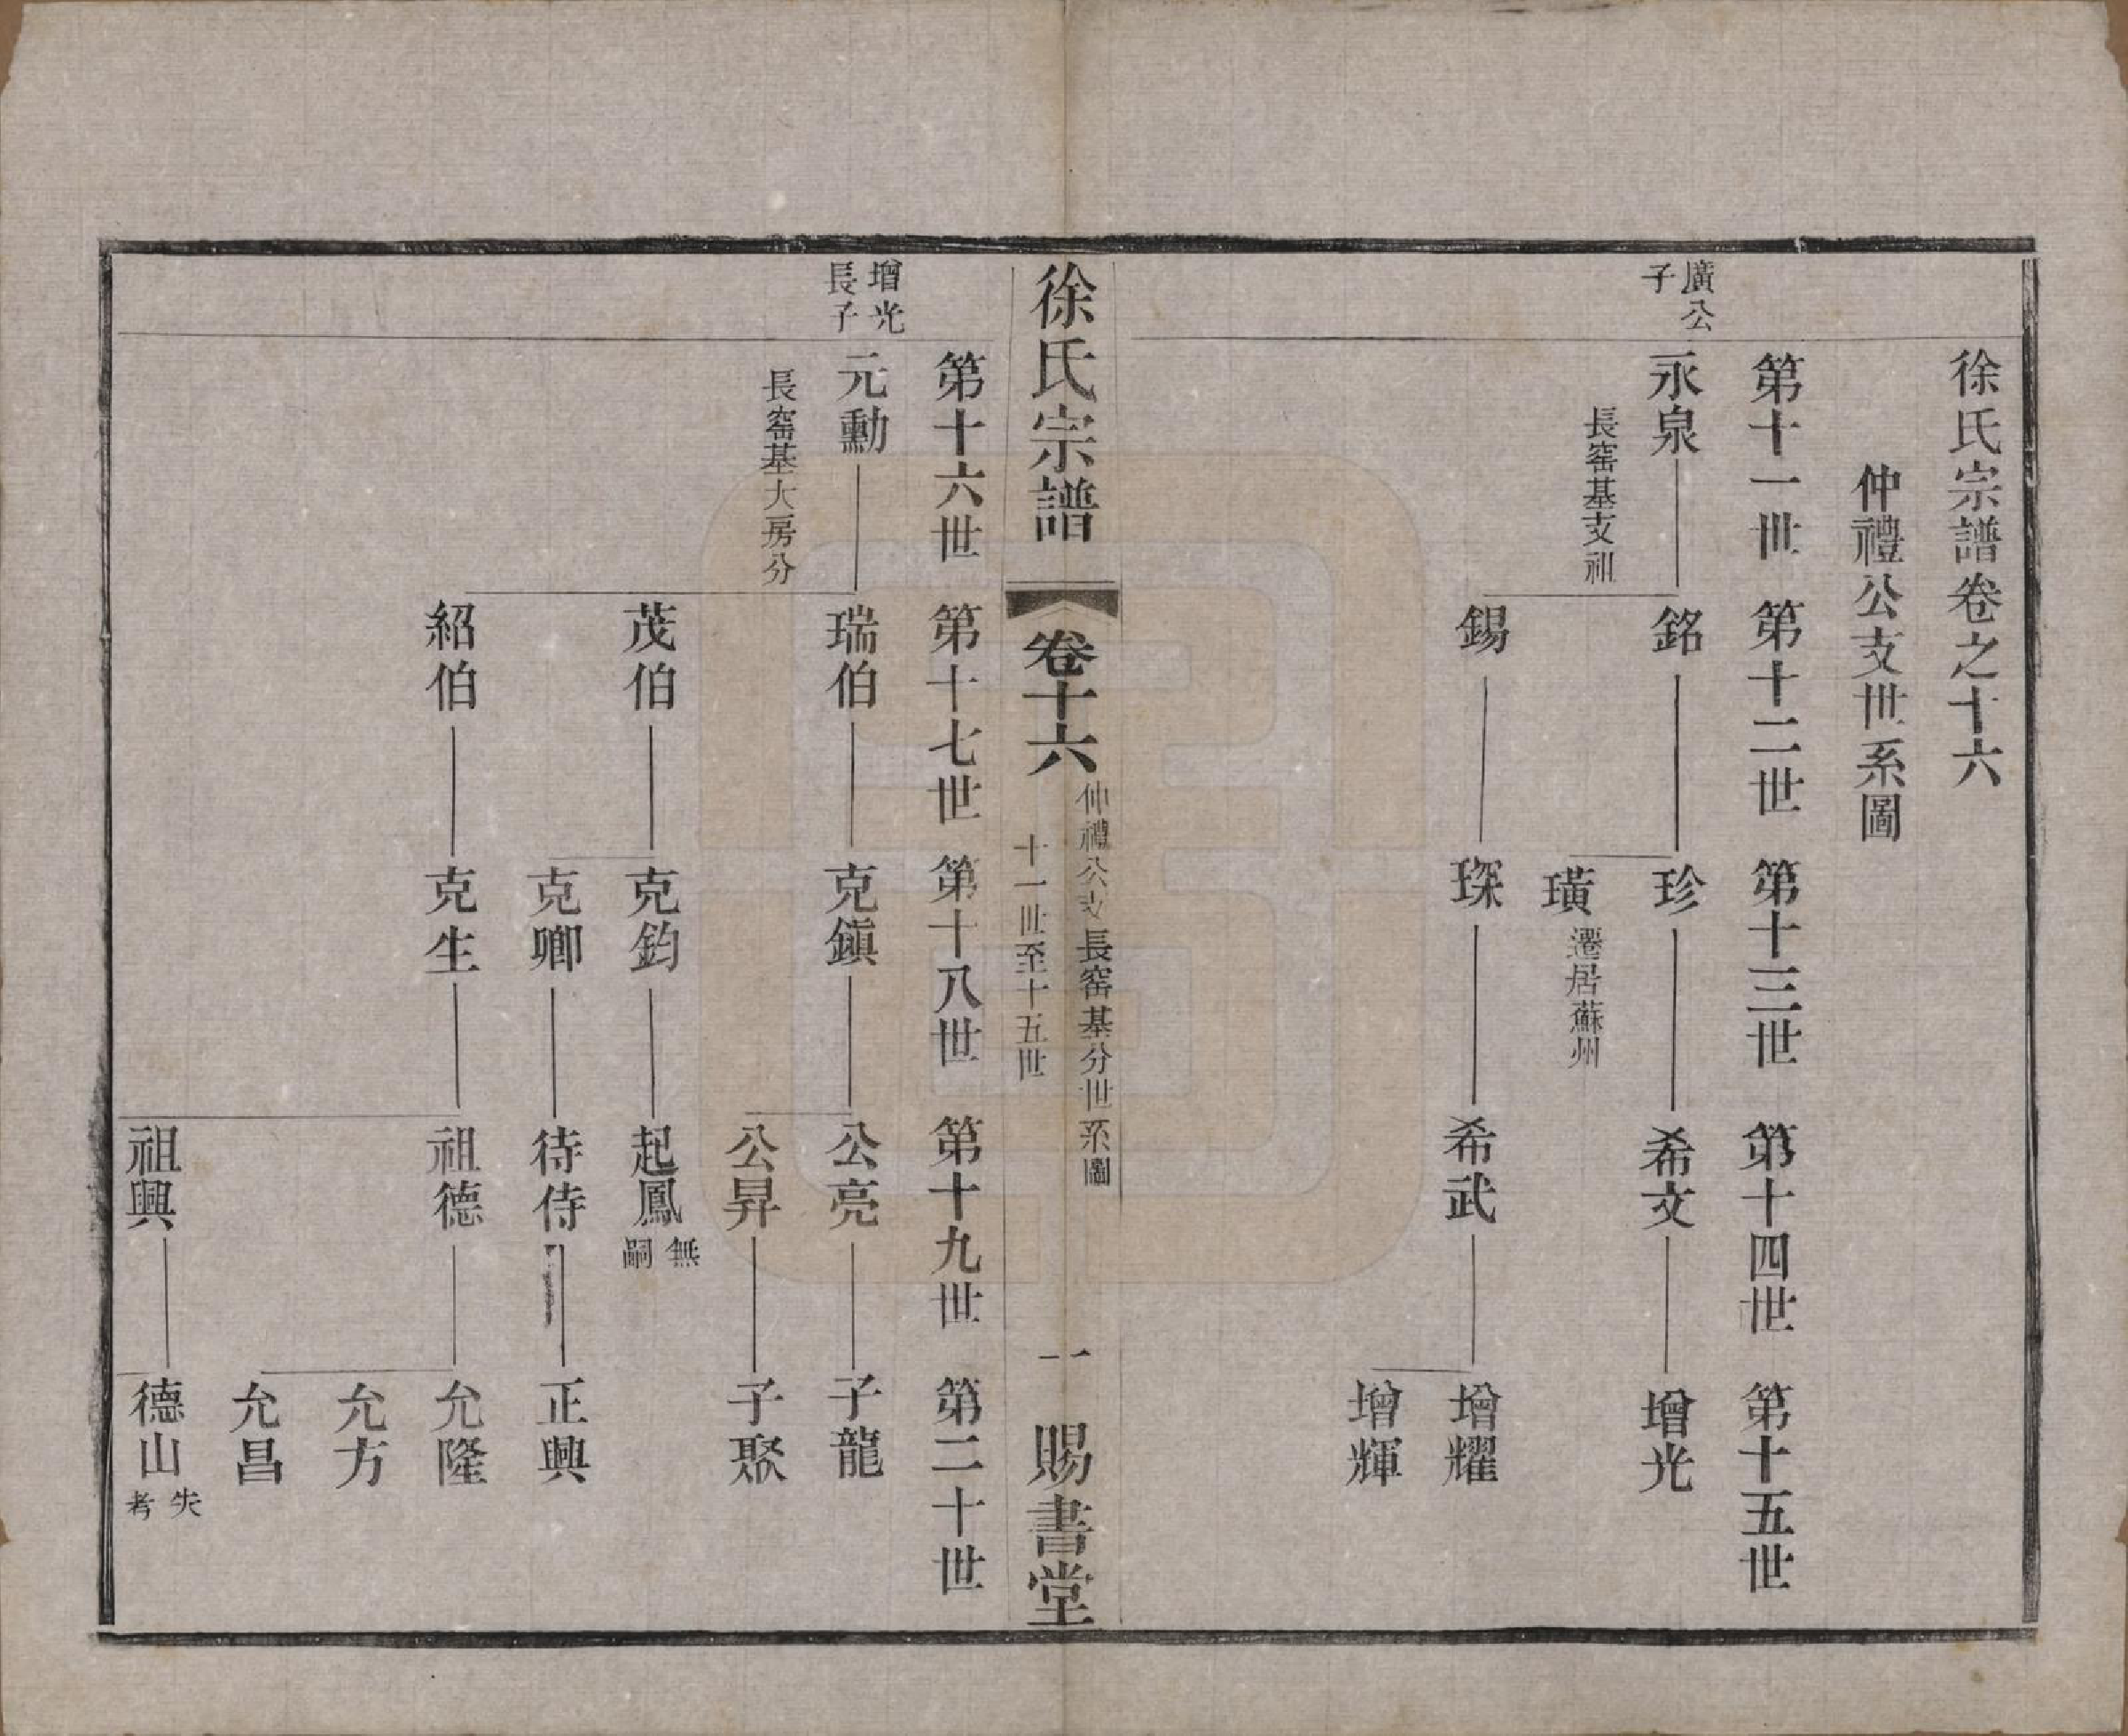 徐氏宗譜卷之十六
仲禮公支世系圖
第十一世 第十二世 第十三世 第十四世 第十五世
廣公子
永泉 銘 珍 希文 增光
長窑基支祖
璜 遷居蘇州
錫 琛 希武 增耀
增輝
徐氏宗譜 卷十六 仲禮公支長窑基分世系圖 十一世至十五世 一 賜書堂
第十六世 第十七世 第十八世 第十九世 第二十世
增光長子
元勳 瑞伯 克鎮 公亮 子龍
長窑基大房分
公昇 子聚
茂伯 克鈞 起鳳 無嗣
克卿 待侍 正興
紹伯 克生 祖德 允隆
允方
允昌
祖興 德山 失考